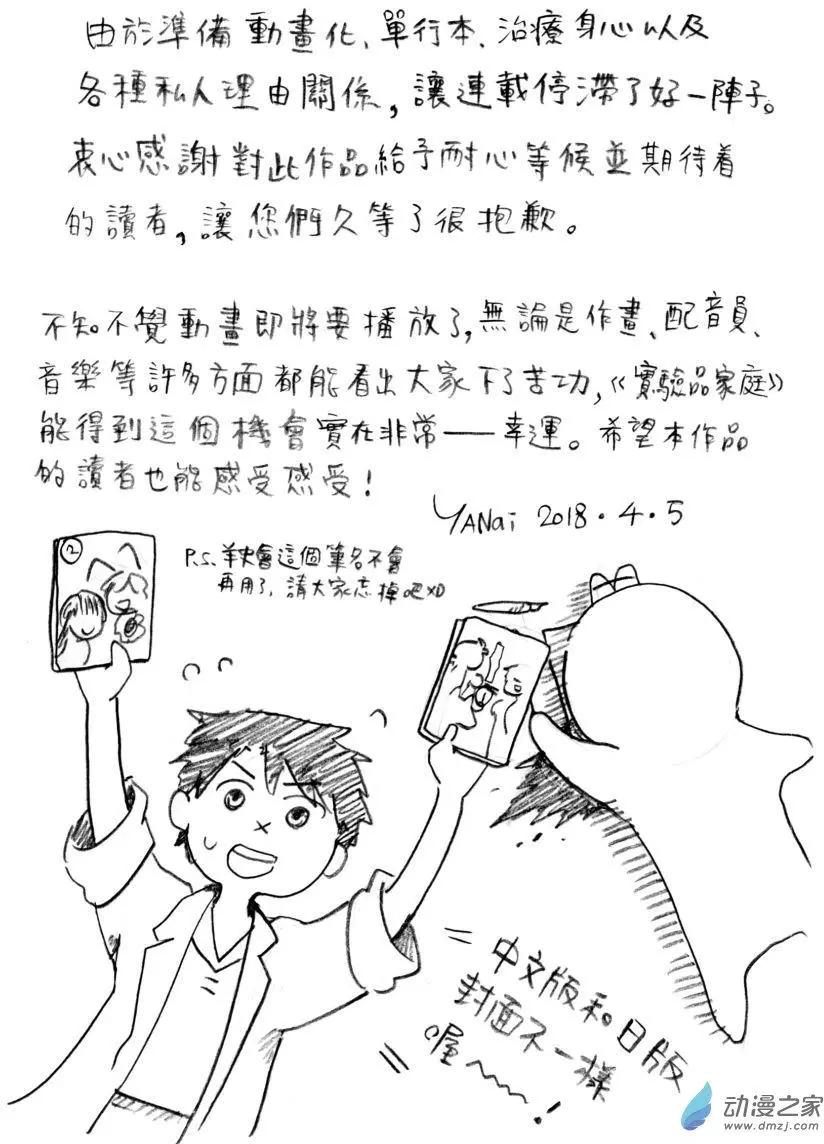 由於準備動畫化、單行本、治療身心以及
各種私人理由關係，讓連載停滯了好一陣子。
衷心感謝對此作品給予耐心等候並期待着
的讀者，讓您們久等了很抱歉。
不知不覺動畫即將要播放了，無論是作畫、配音員、
音樂等許多方面都能看出大家下了苦功，《實驗品家庭》
能得到這個機會實在非常——幸運。希望本作品
的讀者也能感受感受！
YANai 2018.4.5
P.S. 羊史會這個筆名不會
再用了，請大家忘掉吧XD
②
中文版和日版
封面不一樣
喔～！
动漫之家
www.dmzj.com